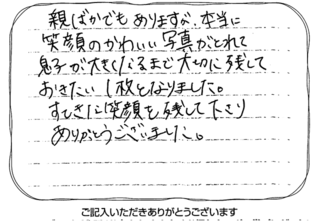 親ばかでもありますが、本当に
笑顔のかわいい写真がとれて
息子が大きくなるまで大切に残して
おきたい1枚となりました。
すてきな笑顔を残して下さり
ありがとうございました。
ご記入いただきありがとうございます